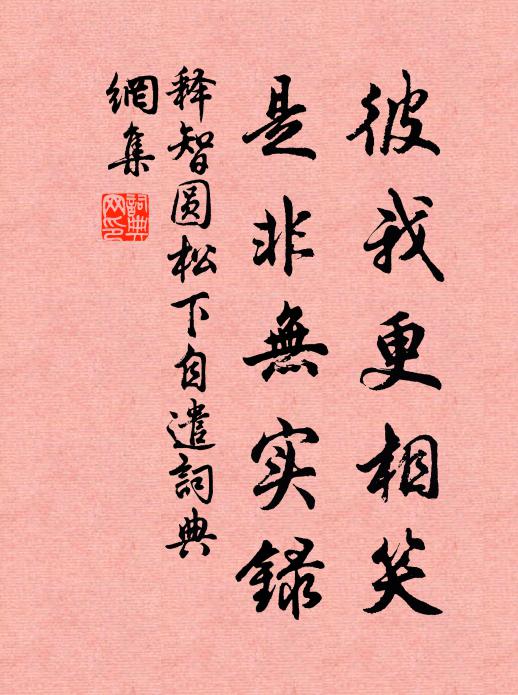 彼我更相笑
是非無实録
释智圆松下自遣詞典
網集
詞典
网印